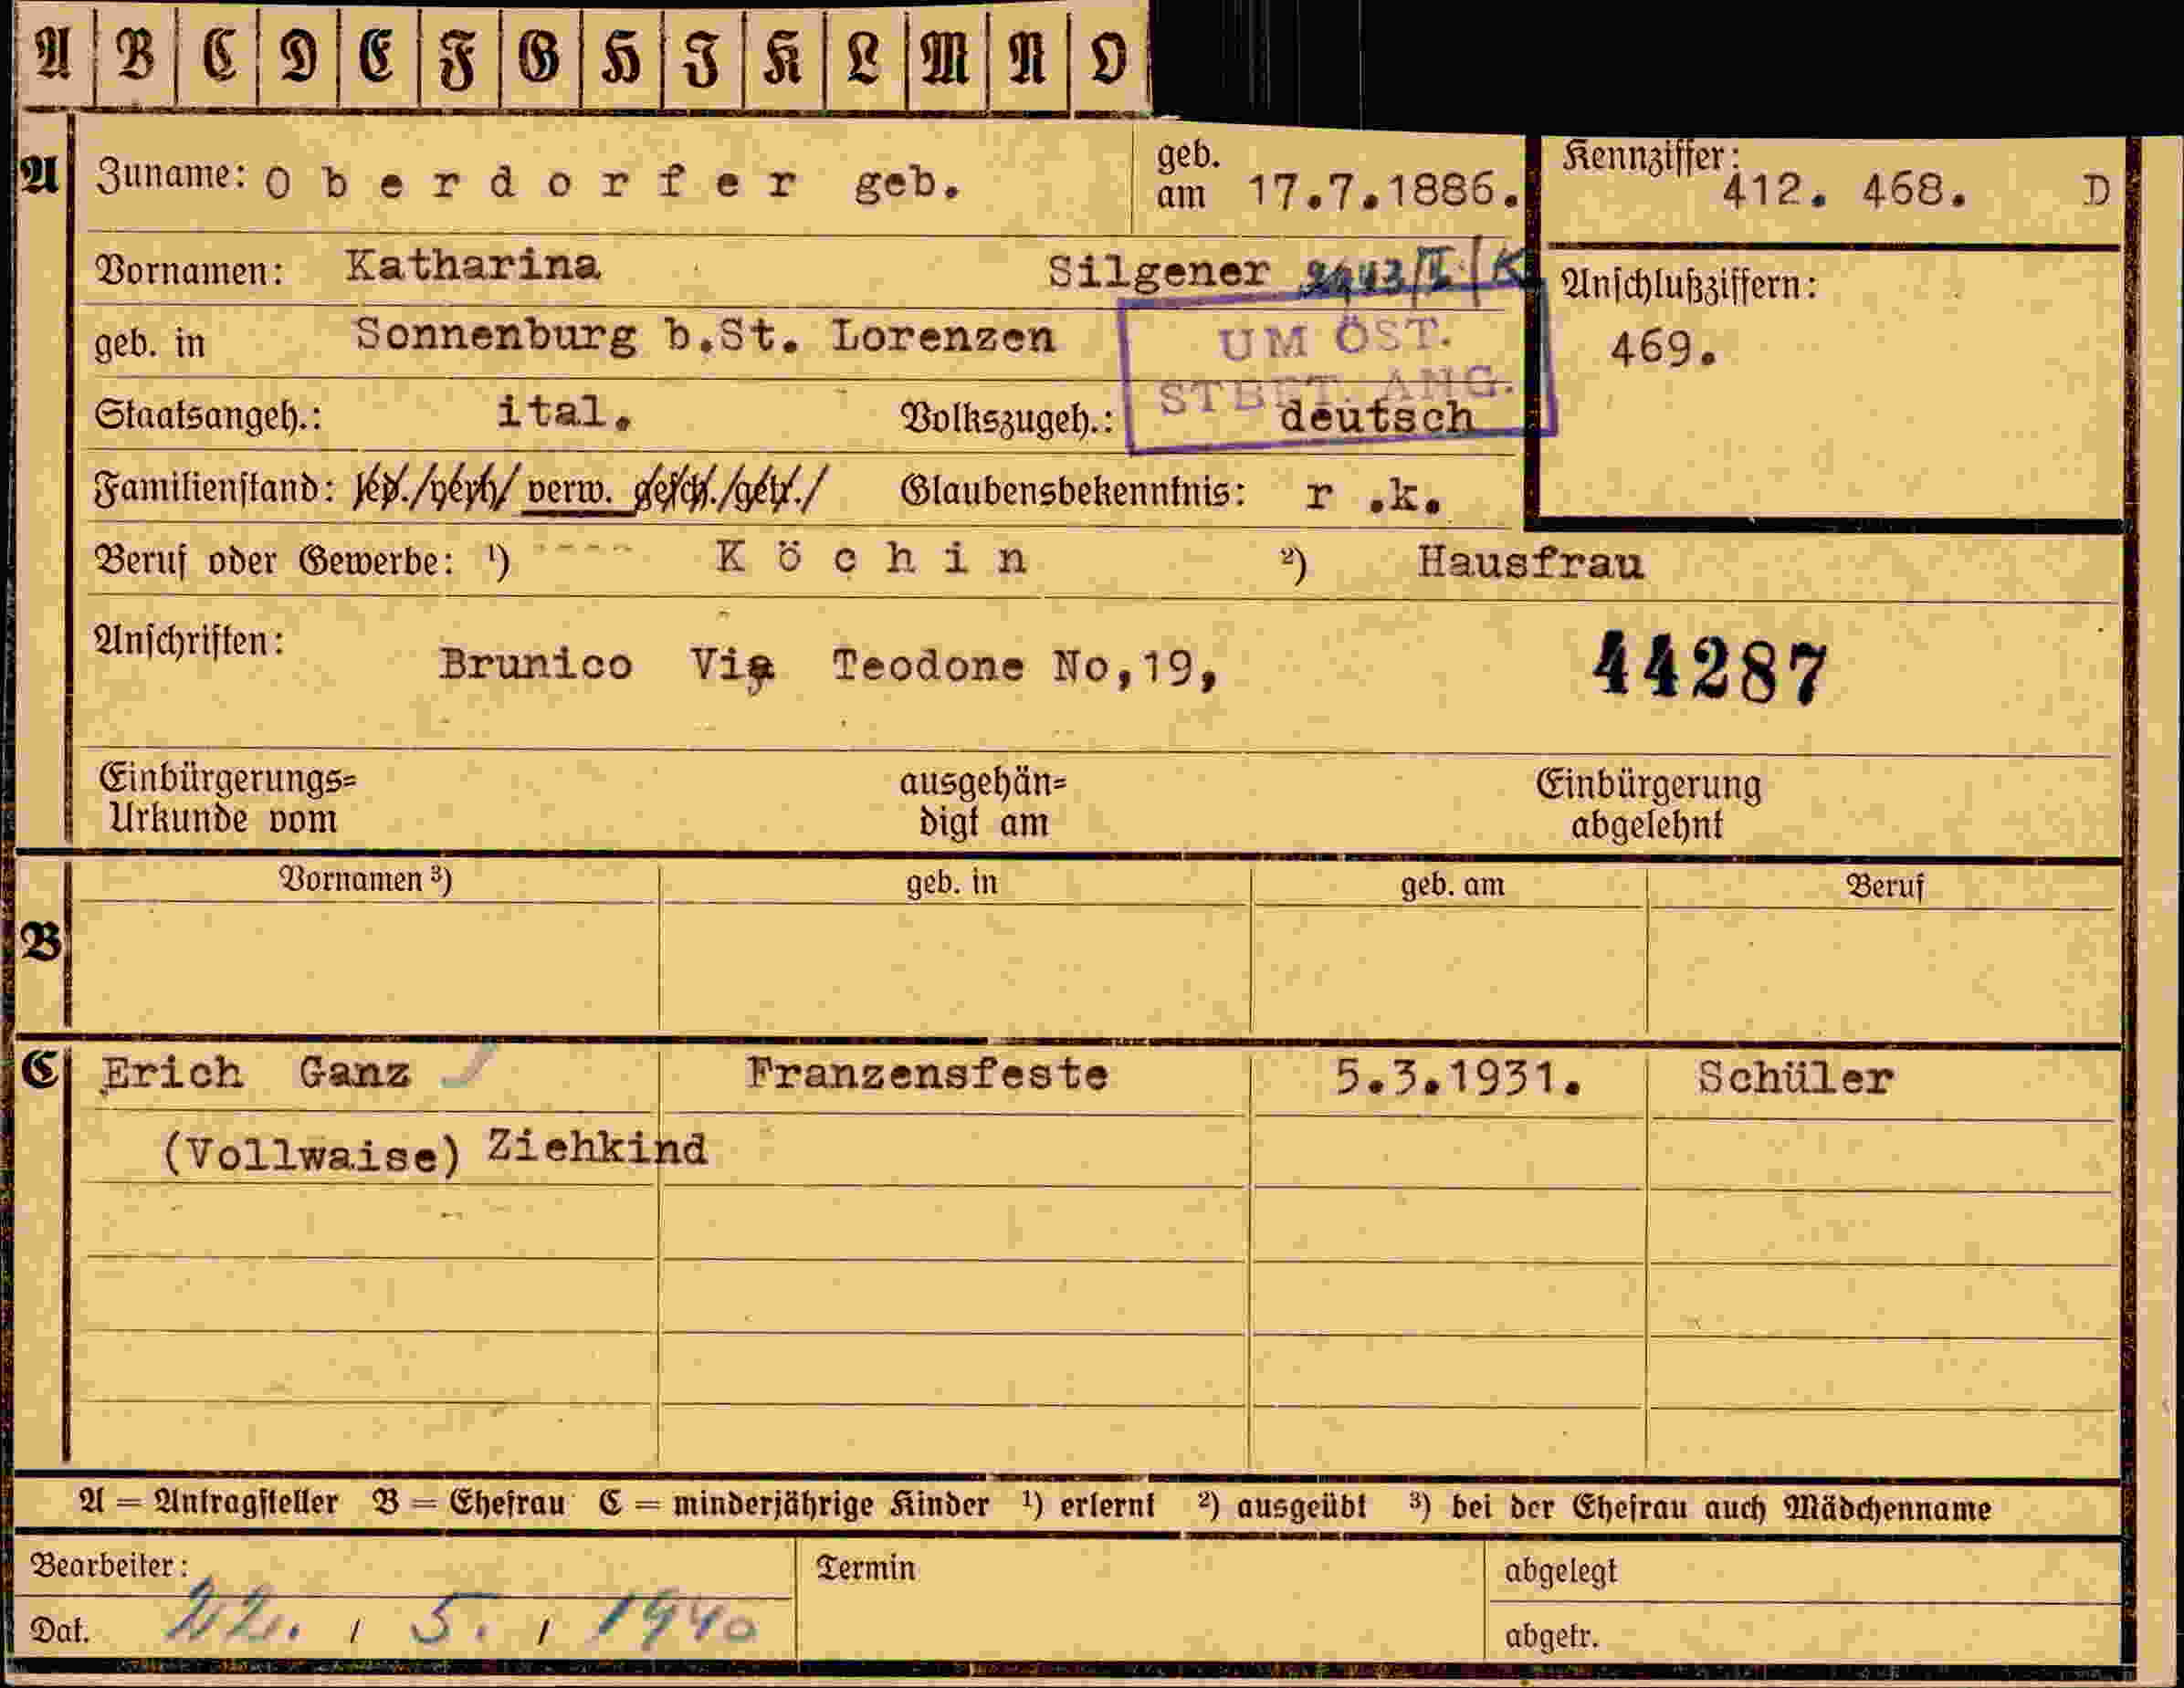 A B C D E F G H I K L M N O
A Zuname: O b e r d o r f e r geb. geb. am 17.7.1886. Kennziffer: 412. 468. D
Vornamen: Katharina Silgener 2443/I/K Anschlußziffern:
geb. in Sonnenburg b.St. Lorenzen UM ÖST. 469.
STBT. ANG.
Staatsangeh.: ital. Volkszugeh.: deutsch
Familienstand: led./verh/ verw. gesch./getr./ Glaubensbekenntnis: r .k.
Beruf oder Gewerbe: ¹) ---- K ö c h i n ²) Hausfrau
Anschriften: Brunico Via Teodone No,19, 44287
Einbürgerungs= ausgehän= Einbürgerung
Urkunde vom digt am abgelehnt
Vornamen ³) geb. in geb. am Beruf
B
C Erich Ganz Franzensfeste 5.3.1931. Schüler
(Vollwaise) Ziehkind
A = Antragsteller B = Ehefrau C = minderjährige Kinder ¹) erlernt ²) ausgeübt ³) bei der Ehefrau auch Mädchenname
Bearbeiter: Termin abgelegt
Dat. 22. / 5. / 1940 abgetr.